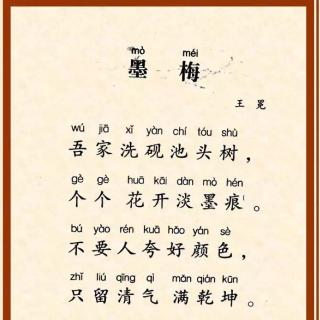 mò méi
墨梅
王冕
wú jiā xǐ yàn chí tóu shù
吾家洗砚池头树，
gè gè huā kāi dàn mò hén
个个花开淡墨痕。
bú yào rén kuā hǎo yán sè
不要人夸好颜色，
zhǐ liú qīng qì mǎn qián kūn
只留清气满乾坤。